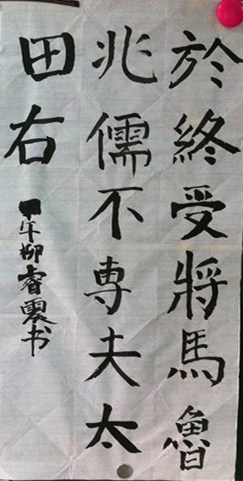 於終受將馬魯
兆儒不専夫太
田右
甲午柳睿震书